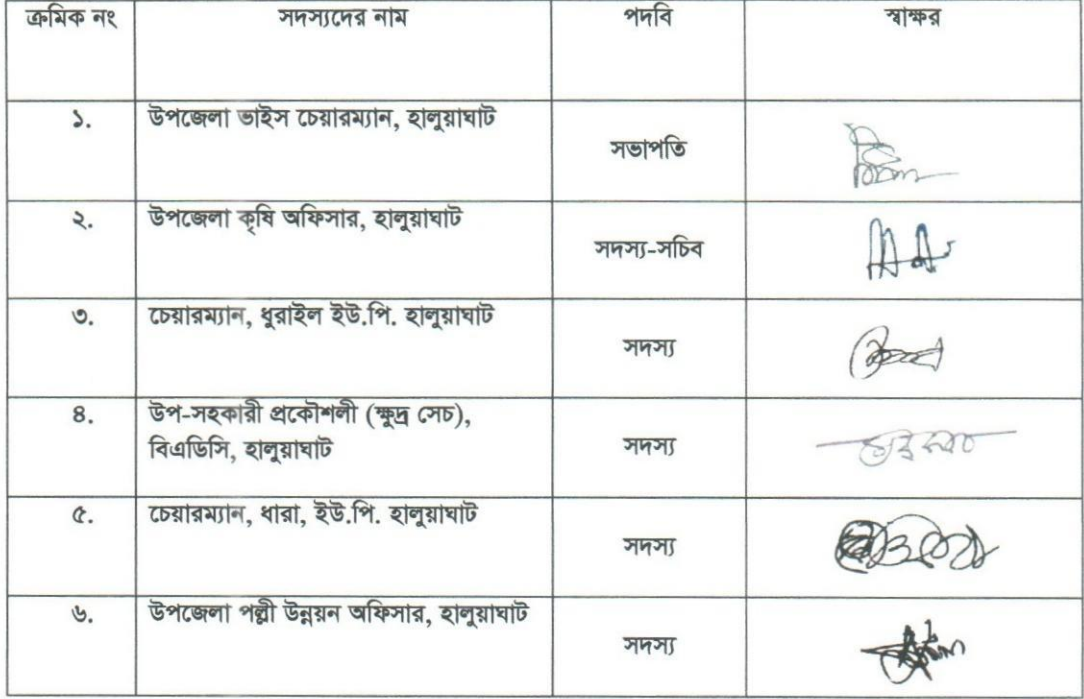 ক্রমিক নং সদস্যদের নাম পদবি স্বাক্ষর
১. উপজেলা ভাইস চেয়ারম্যান, হালুয়াঘাট সভাপতি
২. উপজেলা কৃষি অফিসার, হালুয়াঘাট সদস্য-সচিব
৩. চেয়ারম্যান, ধুরাইল ইউ.পি. হালুয়াঘাট সদস্য
৪. উপ-সহকারী প্রকৌশলী (ক্ষুদ্র সেচ),
বিএডিসি, হালুয়াঘাট সদস্য
৫. চেয়ারম্যান, ধারা, ইউ.পি. হালুয়াঘাট সদস্য
৬. উপজেলা পল্লী উন্নয়ন অফিসার, হালুয়াঘাট সদস্য